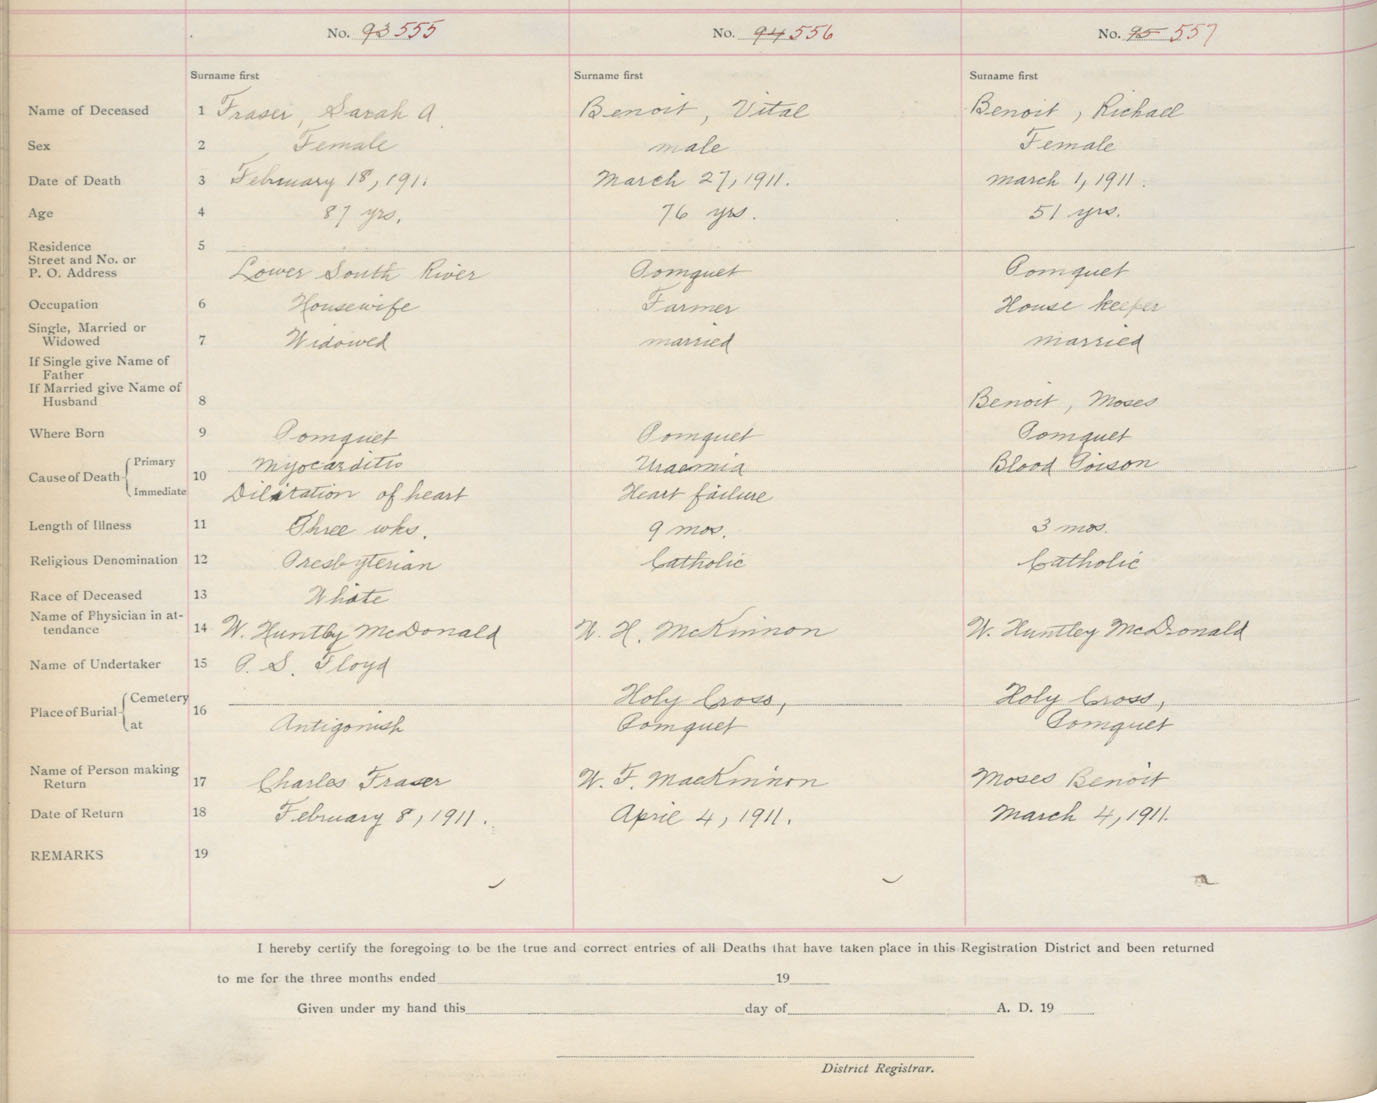 No. 93 555 No. 94 556 No. 95 557
Surname first Surname first Surname first
Name of Deceased 1 Fraser, Sarah A. Benoit, Vital Benoit, Richael
Sex 2 Female male Female
Date of Death 3 February 18, 1911 March 27, 1911. March 1, 1911.
Age 4 87 yrs. 76 yrs. 51 yrs.
Residence 5
Street and No. or
P. O. Address Lower South River Pomquet Pomquet
Occupation 6 Housewife Farmer House keeper
Single, Married or
Widowed 7 Widowed married married
If Single give Name of
Father
If Married give Name of
Husband 8 Benoit, Moses
Where Born 9 Pomquet Pomquet Pomquet
Primary Myocarditis Uraemia Blood Poison
Cause of Death 10
Immediate Dilitation of heart Heart failure
Length of Illness 11 Three wks. 9 mos. 3 mos.
Religious Denomination 12 Presbyterian Catholic Catholic
Race of Deceased 13 White
Name of Physician in at-
tendance 14 W. Huntley McDonald W. H. McKinnon W. Huntley McDonald
Name of Undertaker 15 P. S. Floyd
Cemetery Holy Cross, Holy Cross,
Place of Burial 16
at Antigonish Pomquet Pomquet
Name of Person making
Return 17 Charles Fraser W. F. MacKinnon Moses Benoit
Date of Return 18 February 8, 1911. April 4, 1911. March 4, 1911.
REMARKS 19
I hereby certify the foregoing to be the true and correct entries of all Deaths that have taken place in this Registration District and been returned
to me for the three months ended 19
Given under my hand this day of A. D. 19
District Registrar.